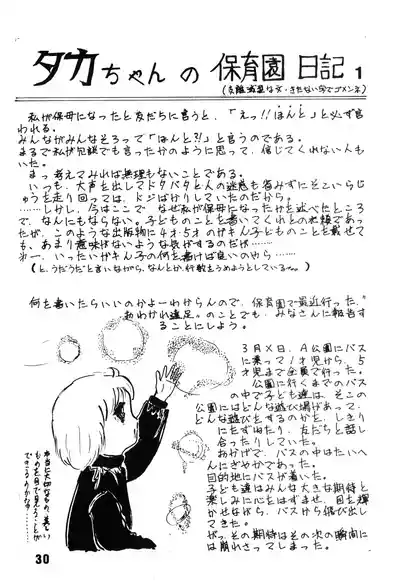 タカちゃんの保育園日記 1
(支離滅裂な文・きたない字でゴメンネ)
私が保母になったと友だちに言うと、「えっ!!ほんと」と必ず言
われる。
みんながみんなそろって「ほんと?!」と言うのである。
まるで私が冗談でも言ったかのように思って、信じてくれない人も
いた。
まっ考えてみれば無理もないことである。
いつも、大声を出してドタバタと人の迷惑も省みずにそこいらじ
ゅうを走り回っては、ドジばけりしていたのだから。
……しけし、今はここで なぜ私が保母になったかを述べたところ
で、なんにもならない。子どものことを書いてくれとの依頼であっ
たが、このような出版物に4才・5才のガキん子どものことを載せて
も、あまり意味がないような気がするのだけど……
いったいガキん子の何を書けば良いのやら……
(と、うだうだと言いながら、なんとか、行数をうめようとしている)
何を書いたらいいのかよーわからんので、保育園で最近行った、
"おわかれ遠足"のことでも、みなさんに報告す
ることにしよう。
3月X日、A公園にバス
に乗って1才児から、5
才児まで全員で行った。
公園に行くまでのバス
の中で子ども達は、そこの
公園にはどんな遊び場があって、
どんな遊びをするのかを、しきり
にたずねたり、友だちと話し
合ったりしていた。
おかげで、バスの中はたいへ
んにぎやかであった。
目的地にバスが着いた。
子ども達はみんな大きな期待と
楽しみに心をはずませ、目を輝
かせながら、バスから飛び出し
てきた。
がっ、その期待はその次の瞬間に
は崩れさってしまった。
本当に大切なもの、美しい
ものを目で見えることが
できるのかナ…
30